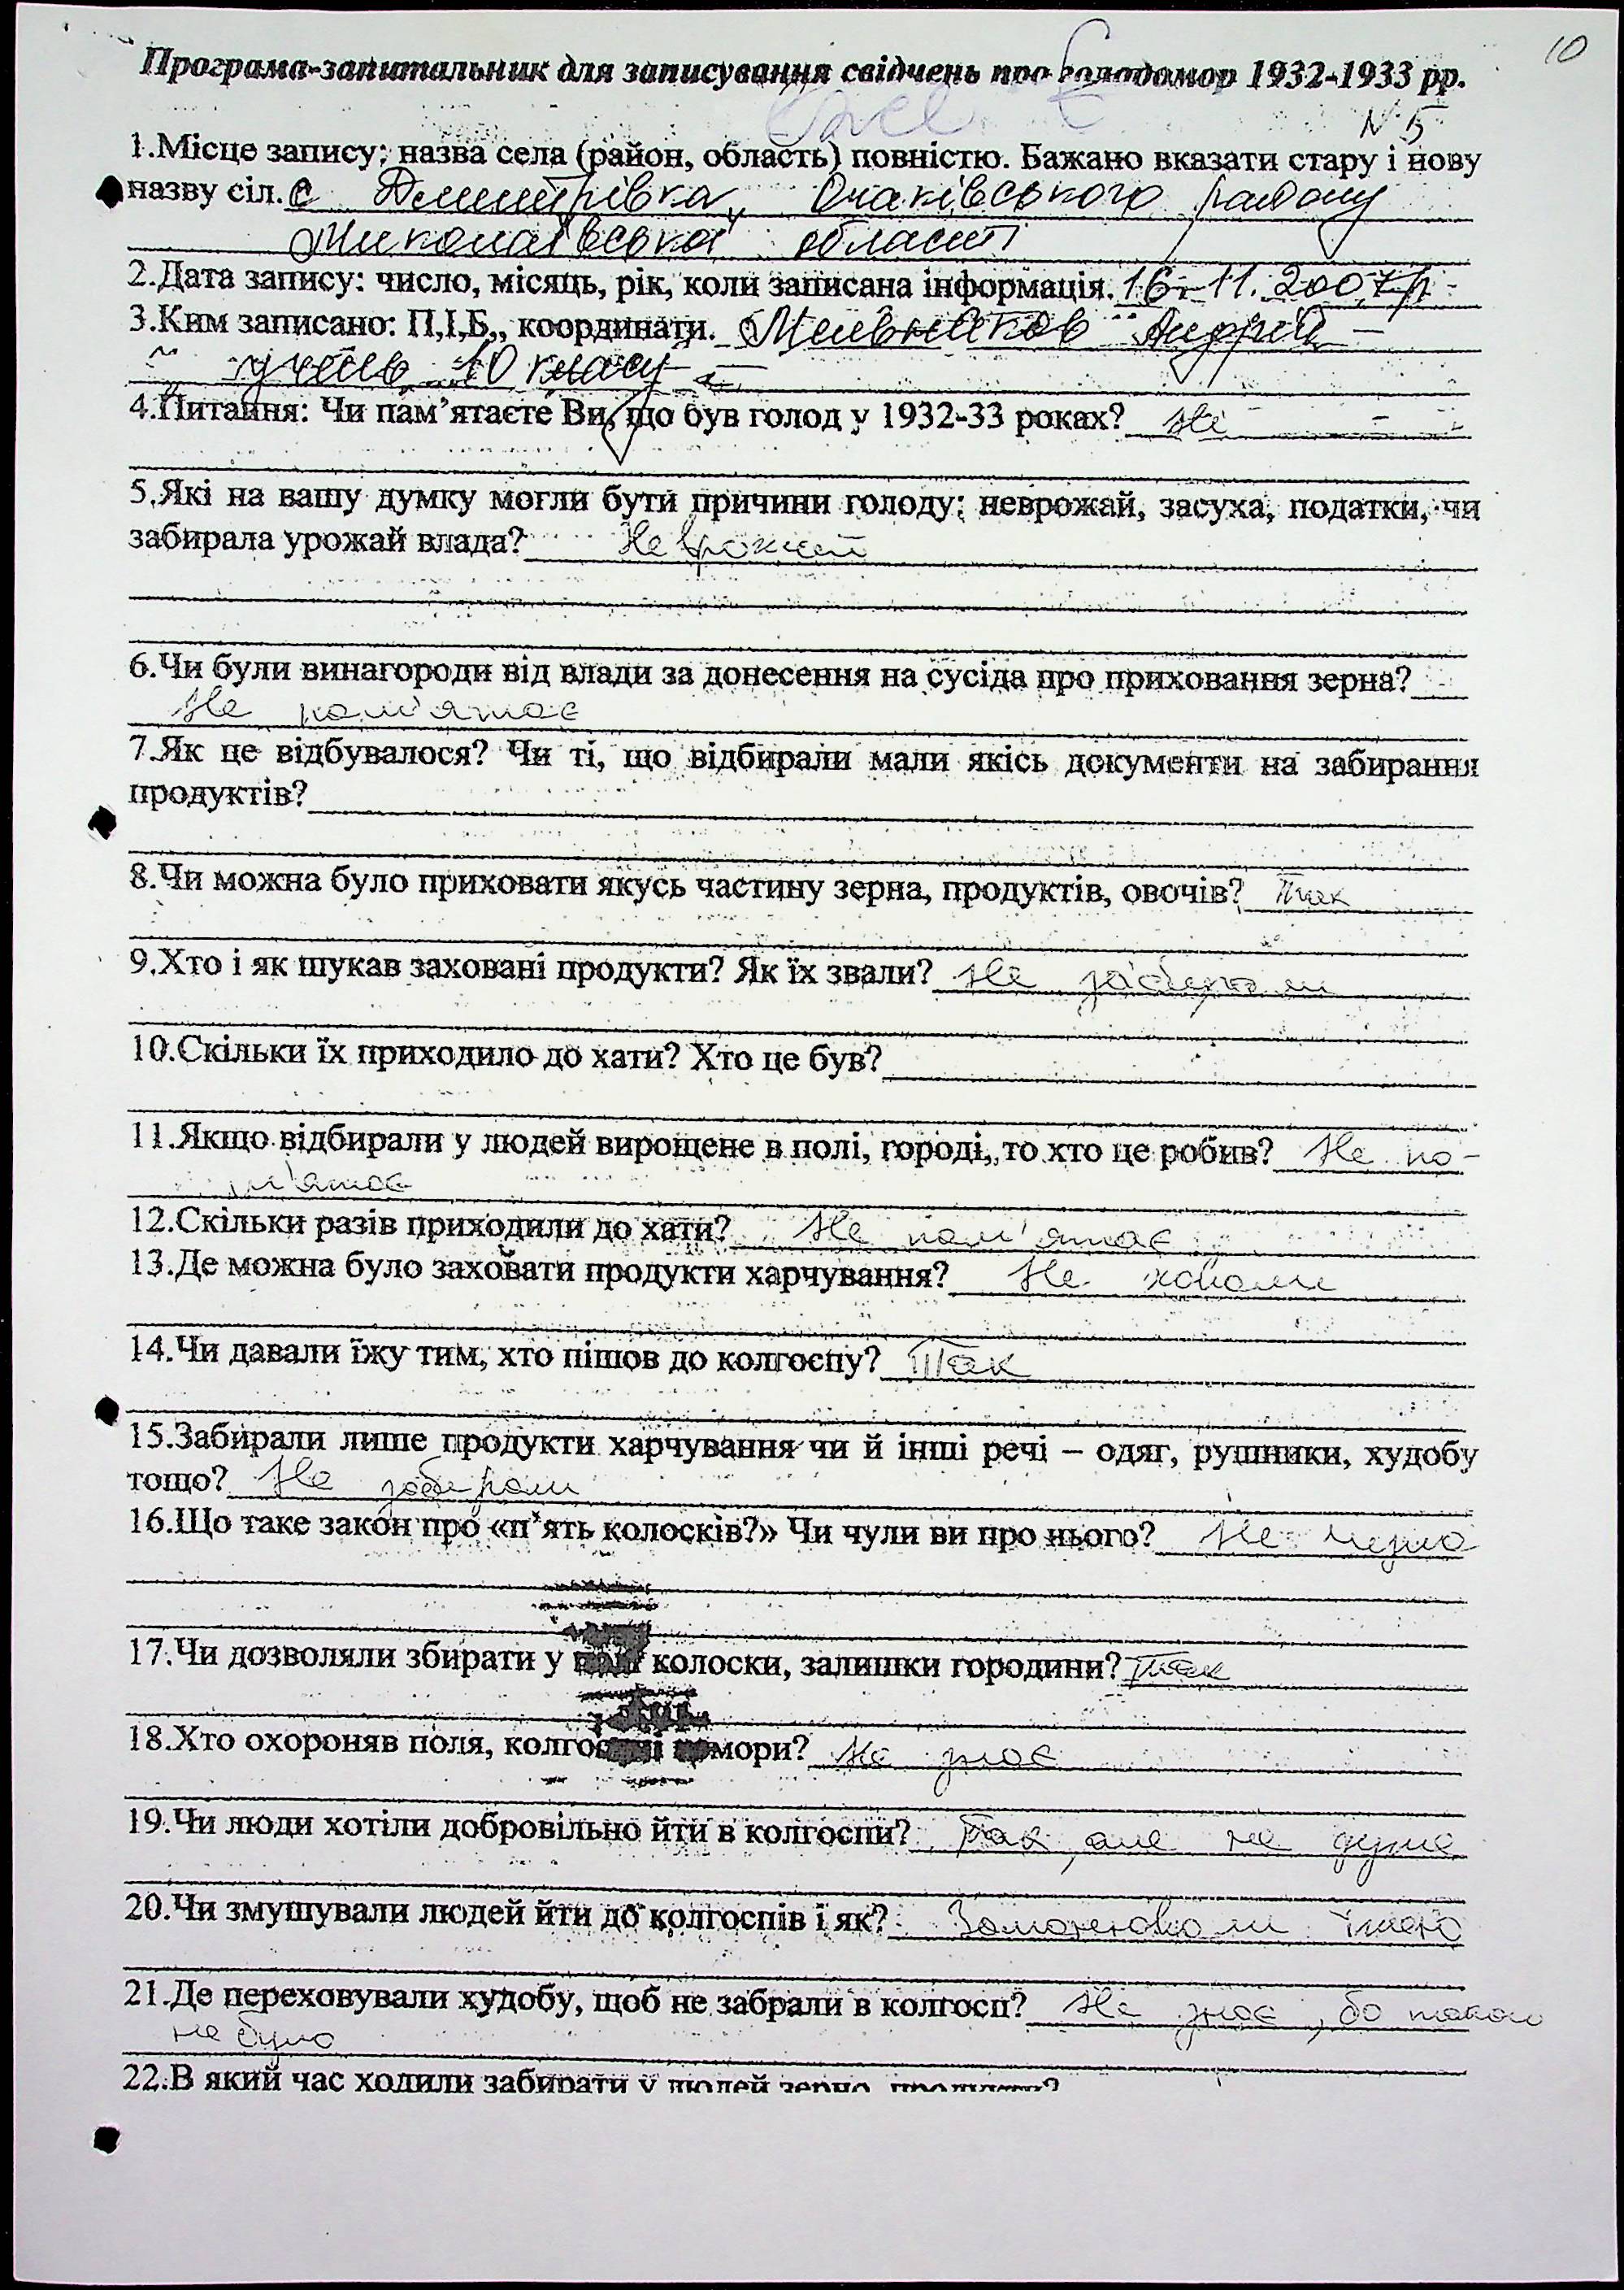 10
Програма-запитальник для записування свідчень про голодомор 1932-1933 рр.
№ 5
1.Місце запису; назва села (район, область) повністю. Бажано вказати стару і нову
назву сіл. с Дмитрівка, Очаківського району
Миколаївської області
2.Дата запису: число, місяць, рік, коли записана інформація. 16. 11. 2007р
3.Ким записано: П,І,Б,, координати. Андрій –
учень 10 класу
4.Питання: Чи пам’ятаєте Ви, що був голод у 1932-33 роках? Ні
5.Які на вашу думку могли бути причини голоду; неврожай, засуха, податки, чи
забирала урожай влада? Неврожай
6.Чи були винагороди від влади за донесення на сусіда про приховання зерна?
Не пам'ятає
7.Як це відбувалося? Чи ті, що відбирали мали якісь документи на забирання
продуктів?
8.Чи можна було приховати якусь частину зерна, продуктів, овочів? Так
9.Хто і як шукав заховані продукти? Як їх звали? Не забирали
10.Скільки їх приходило до хати? Хто це був?
11.Якщо відбирали у людей вирощене в полі, городі, то хто це робив? Не па-
м'ятає
12.Скільки разів приходили до хати? Не пам'ятає
13.Де можна було заховати продукти харчування? Не ховали
14.Чи давали їжу тим, хто пішов до колгоспу? Так
15.Забирали лише продукти харчування чи й інші речі – одяг, рушники, худобу
тощо? Не забирали
16.Що таке закон про «п’ять колосків?» Чи чули ви про нього? Не чула
17.Чи дозволяли збирати у полі колоски, залишки городини? Так
18.Хто охороняв поля, колгоспні комори? Не знає
19.Чи люди хотіли добровільно йти в колгоспи? Так, але не дуже
20.Чи змушували людей йти до колгоспів і як? Заманювали їжею
21.Де переховували худобу, щоб не забрали в колгосп? Не знає, бо такого
не було
22.В який час ходили забирати у людей зерно, продукти?